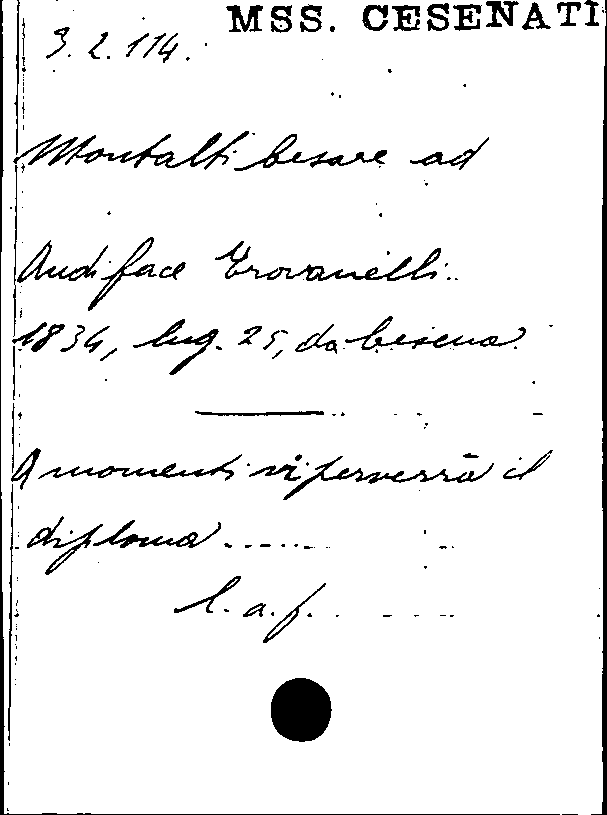 MSS. CESENATI
3. 2. 114.
Montalti Cesare ad
Audiface Trovanelli.
1834, lug. 25, da Cesena
A momenti vi perverrà il
diploma ......
l. a. f.